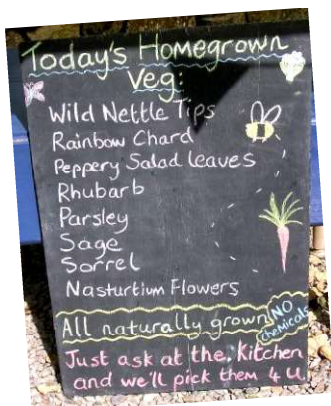 Today's Homegrown
Veg:
Wild Nettle Tips
Rainbow Chard
Peppery Salad leaves
Rhubarb
Parsley
Sage
Sorrel
Nasturtium Flowers
All naturally grown NO
chemicals
Just ask at the Kitchen
and we'll pick them 4 U.